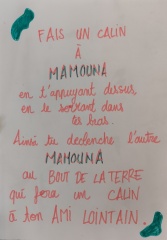 FAIS UN CALIN
À
MAMOUNA
en t'appuyant dessus
en le serrant dans
les bras.
Ainsi tu declenche l'autre
MAMOUNA
au BOUT DE LA TERRE
qui fera un CALIN
à ton AMI LOINTAIN.